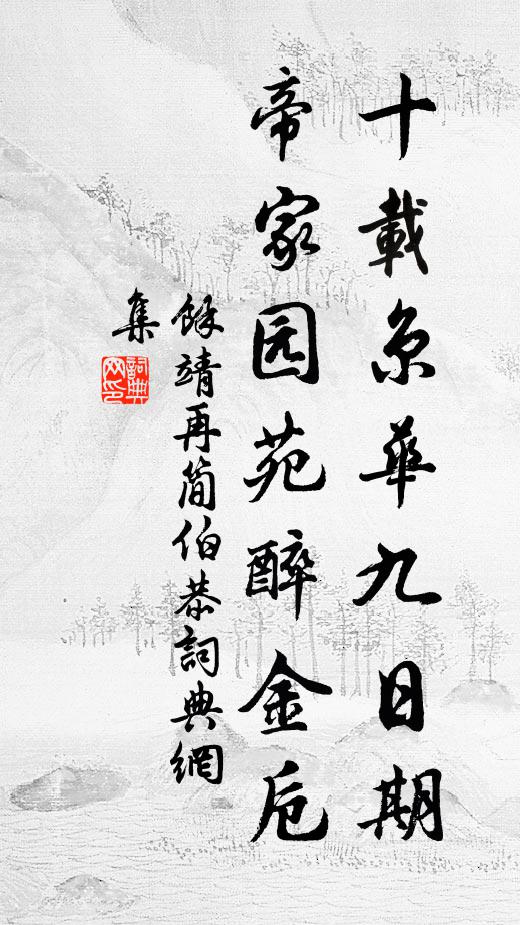 十載京華九日期
帝家园苑醉金卮
餘靖再简伯恭詞典網
集
詞典
网印